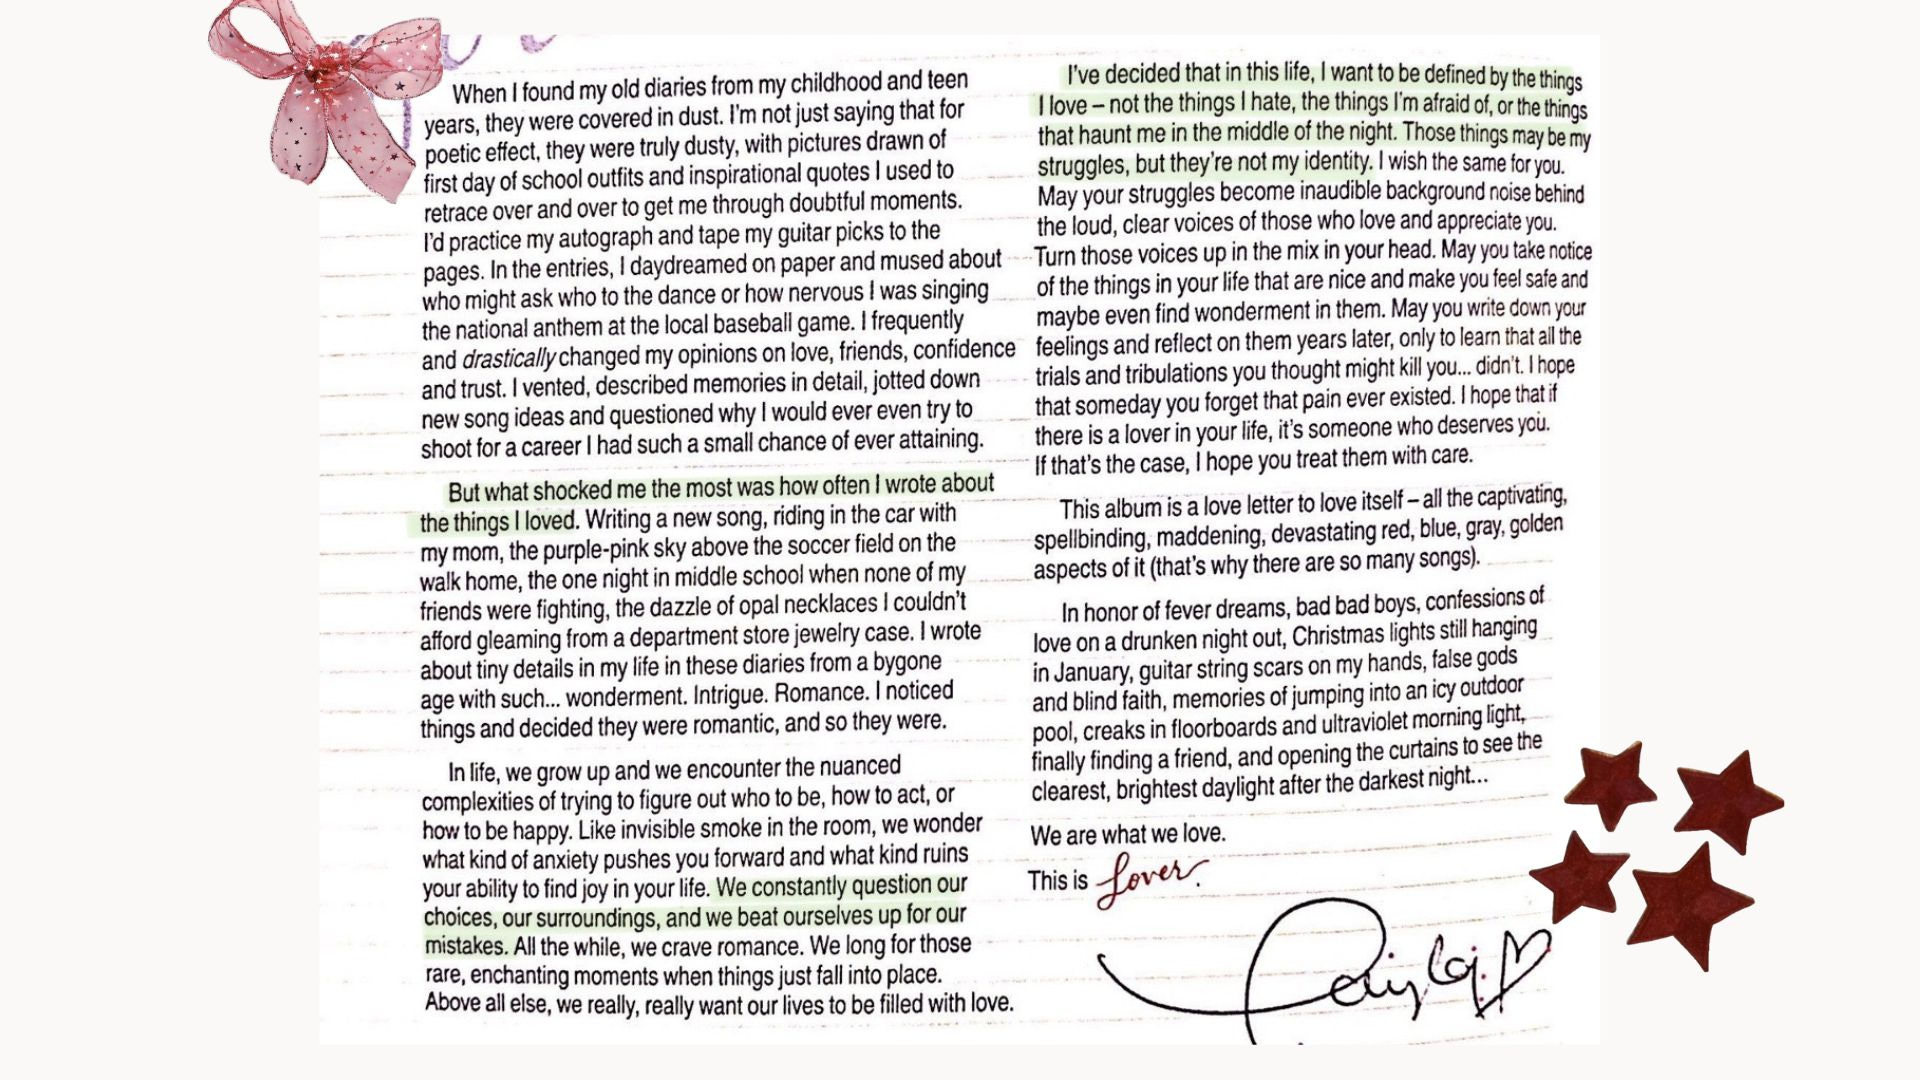 When I found my old diaries from my childhood and teen
years, they were covered in dust. I'm not just saying that for
poetic effect, they were truly dusty, with pictures drawn of
first day of school outfits and inspirational quotes I used to
retrace over and over to get me through doubtful moments.
I'd practice my autograph and tape my guitar picks to the
pages. In the entries, I daydreamed on paper and mused about
who might ask who to the dance or how nervous I was singing
the national anthem at the local baseball game. I frequently
and drastically changed my opinions on love, friends, confidence
and trust. I vented, described memories in detail, jotted down
new song ideas and questioned why I would ever even try to
shoot for a career I had such a small chance of ever attaining.
But what shocked me the most was how often I wrote about
the things I loved. Writing a new song, riding in the car with
my mom, the purple-pink sky above the soccer field on the
walk home, the one night in middle school when none of my
friends were fighting, the dazzle of opal necklaces I couldn't
afford gleaming from a department store jewelry case. I wrote
about tiny details in my life in these diaries from a bygone
age with such... wonderment. Intrigue. Romance. I noticed
things and decided they were romantic, and so they were.
In life, we grow up and we encounter the nuanced
complexities of trying to figure out who to be, how to act, or
how to be happy. Like invisible smoke in the room, we wonder
what kind of anxiety pushes you forward and what kind ruins
your ability to find joy in your life. We constantly question our
choices, our surroundings, and we beat ourselves up for our
mistakes. All the while, we crave romance. We long for those
rare, enchanting moments when things just fall into place.
Above all else, we really, really want our lives to be filled with love.
I've decided that in this life, I want to be defined by the things
I love – not the things I hate, the things I'm afraid of, or the things
that haunt me in the middle of the night. Those things may be my
struggles, but they're not my identity. I wish the same for you.
May your struggles become inaudible background noise behind
the loud, clear voices of those who love and appreciate you.
Turn those voices up in the mix in your head. May you take notice
of the things in your life that are nice and make you feel safe and
maybe even find wonderment in them. May you write down your
feelings and reflect on them years later, only to learn that all the
trials and tribulations you thought might kill you... didn't. I hope
that someday you forget that pain ever existed. I hope that if
there is a lover in your life, it's someone who deserves you.
If that's the case, I hope you treat them with care.
This album is a love letter to love itself – all the captivating,
spellbinding, maddening, devastating red, blue, gray, golden
aspects of it (that's why there are so many songs).
In honor of fever dreams, bad bad boys, confessions of
love on a drunken night out, Christmas lights still hanging
in January, guitar string scars on my hands, false gods
and blind faith, memories of jumping into an icy outdoor
pool, creaks in floorboards and ultraviolet morning light,
finally finding a friend, and opening the curtains to see the
clearest, brightest daylight after the darkest night...
We are what we love.
This is Lover.